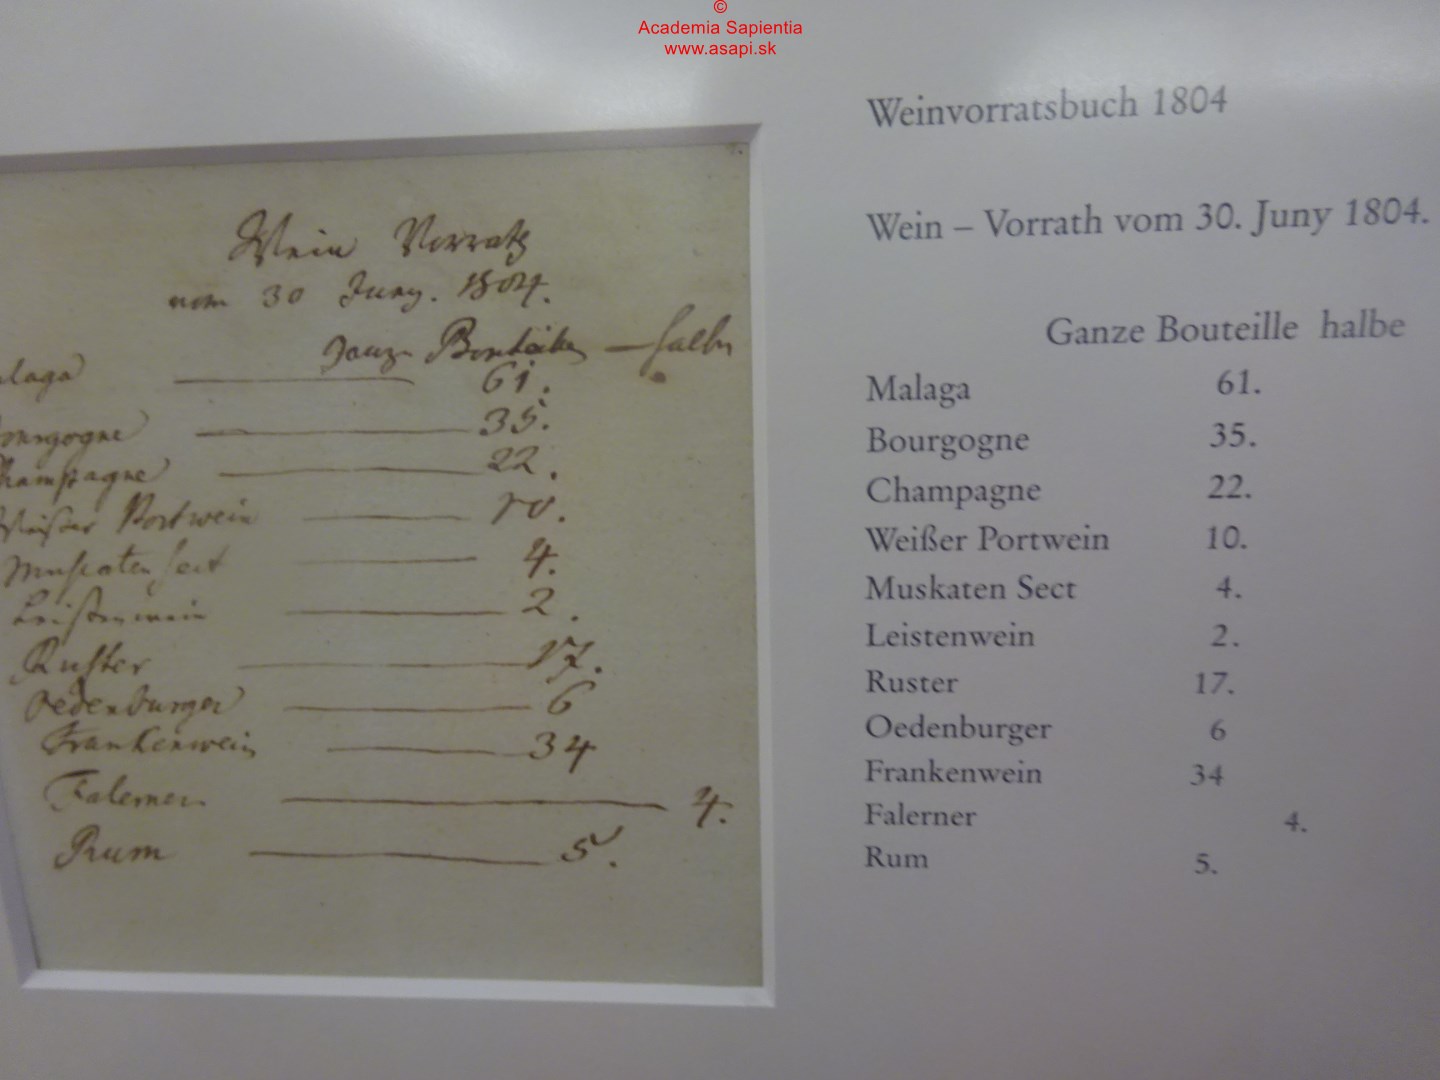 ©
Academia Sapientia
www.asapi.sk
Wein Vorrath
vom 30 Juny. 1804.
Ganze Bouteillen — halbe
laga — 61.
ourgogne — 35.
hampagne — 22.
Weißer Portwein — 10.
Muskaten Sect — 4.
Leistenwein — 2.
Ruster — 17.
Oedenburger — 6
Frankenwein — 34
Falerner — 4.
Rum — 5.
Weinvorratsbuch 1804
Wein – Vorrath vom 30. Juny 1804.
Ganze Bouteille halbe
Malaga 61.
Bourgogne 35.
Champagne 22.
Weißer Portwein 10.
Muskaten Sect 4.
Leistenwein 2.
Ruster 17.
Oedenburger 6
Frankenwein 34
Falerner 4.
Rum 5.